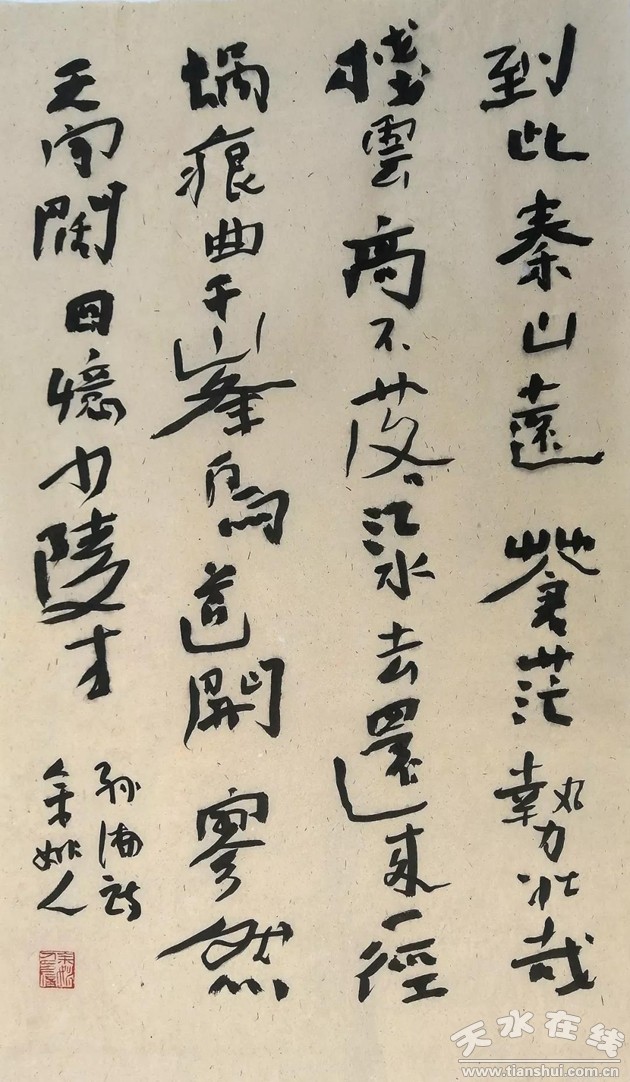 到此秦山遠蒼茫勢壯哉
棧雲高不落江水去還来一徑
蝸痕曲千峯鳥道開寥然
天宇闊回憶少陵才
余姚人
天水在线
www.tianshui.com.cn